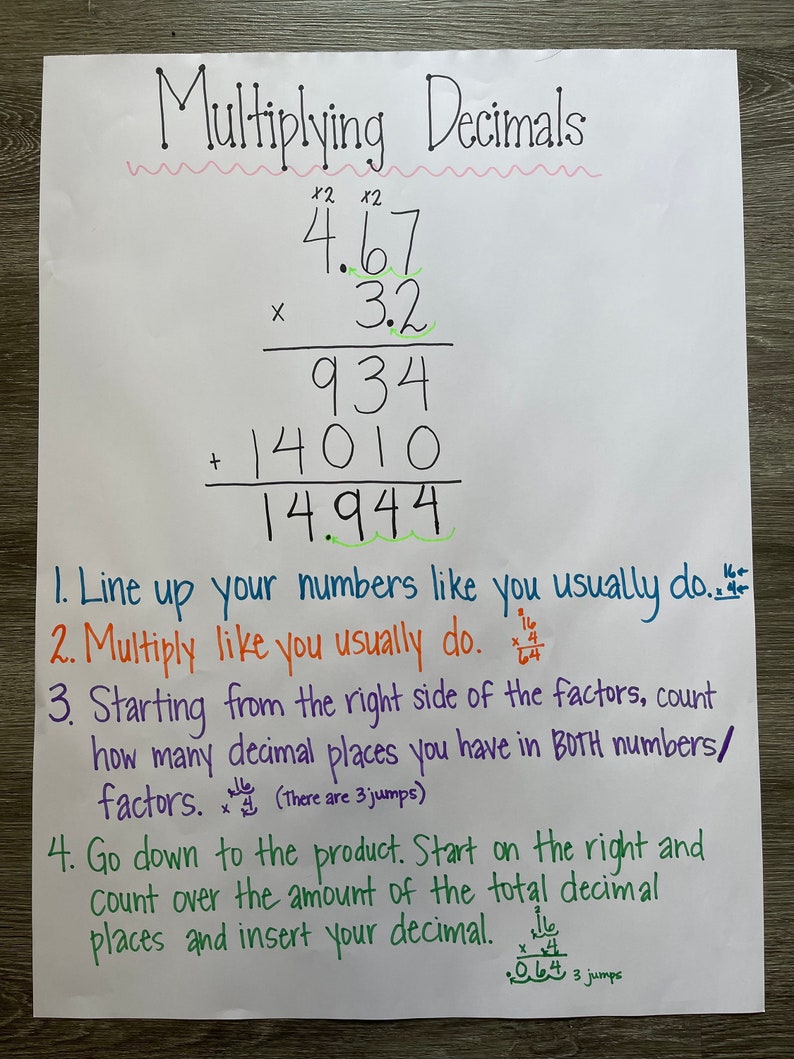 Multiplying Decimals
x2 x2
4.67
x 3.2
934
+ 14010
14.944
1. Line up your numbers like you usually do. 16
x 4
2. Multiply like you usually do. 2
16
x 4
64
3. Starting from the right side of the factors, count
how many decimal places you have in BOTH numbers/
factors. .16
x .4 (There are 3 jumps)
4. Go down to the product. Start on the right and
count over the amount of the total decimal
places and insert your decimal. 2
.16
x .4
.064 3 jumps